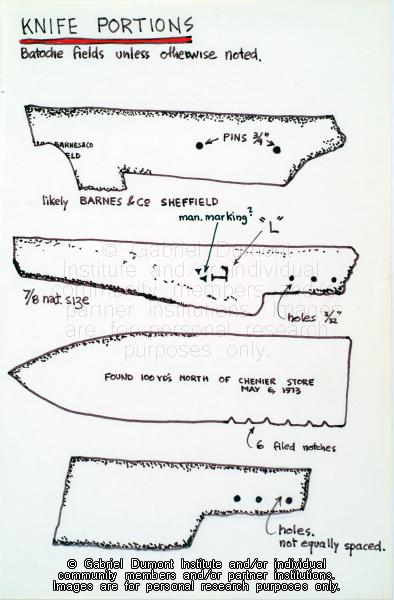 KNIFE PORTIONS
Batoche fields unless otherwise noted.
BARNES&CO
ELD
PINS 3/4"
likely BARNES & Co SHEFFIELD
man. marking?
"L"
© Gabriel Dumont
Institute and/or individual
community members and/or
partner institutions. Images
are for personal research
purposes only.
7/8 nat. size
holes 3/32"
FOUND 100 YD'S NORTH OF CHENIER STORE
MAY 6, 1973
6 filed notches
holes.
not equally spaced.
© Gabriel Dumont Institute and/or individual
community members and/or partner institutions.
Images are for personal research purposes only.